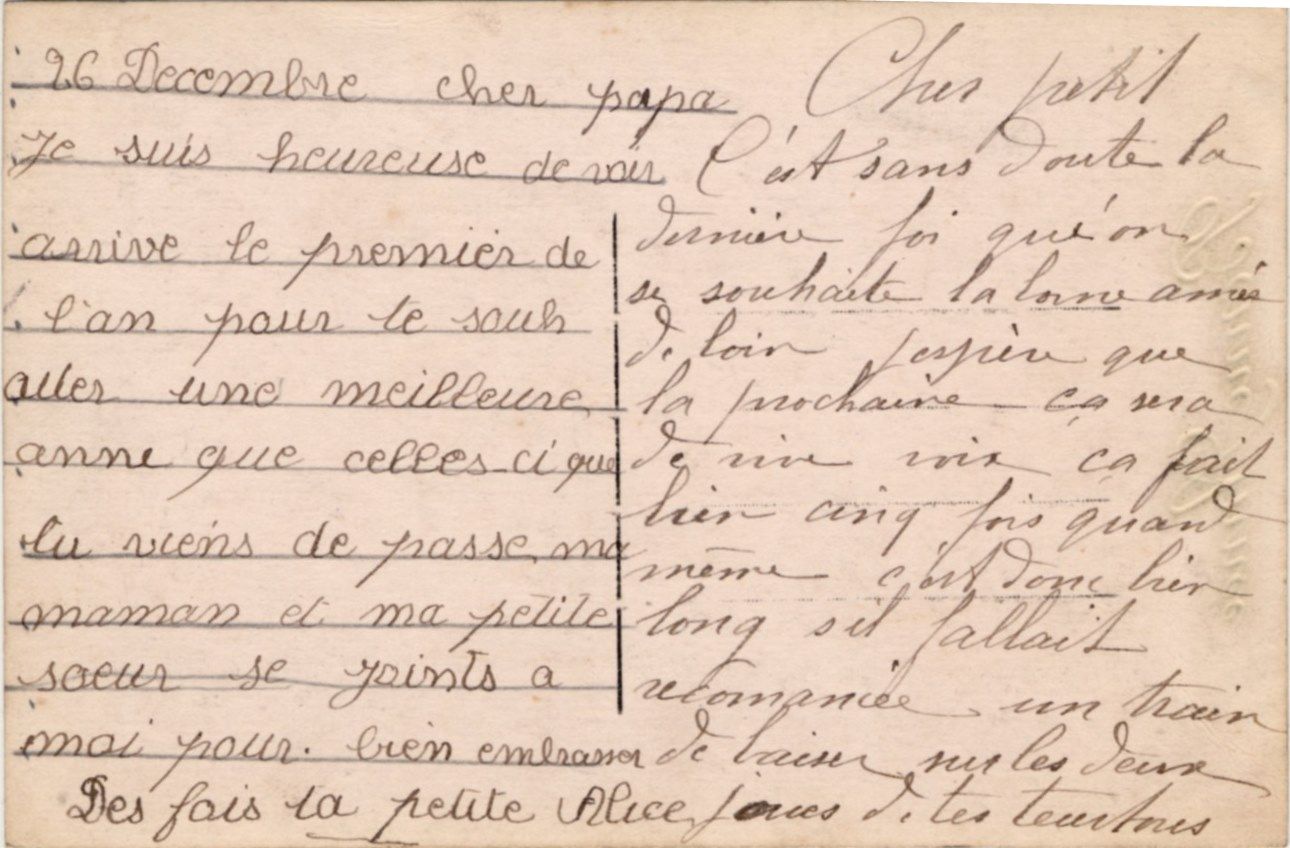 26 Decembre cher papa
Je suis heureuse de voir
arrive le premier de
l'an pour te souh
aiter une meilleure
anne que celles-ci que
tu viens de passe, ma
maman et ma petite
soeur se joints a
moi pour. bien embrasser
Des fois ta petite Alice
Cher petit
C'est sans doute la
dernière foi qué on
se souhaite la bonne anné
de loin j'espère que
la prochaine ça sera
de vive voix ça fait
bien cinq fois quand
même c'est donc bien
long s'il fallait
recomancée un train
de baiser sur les deux
joues de tes